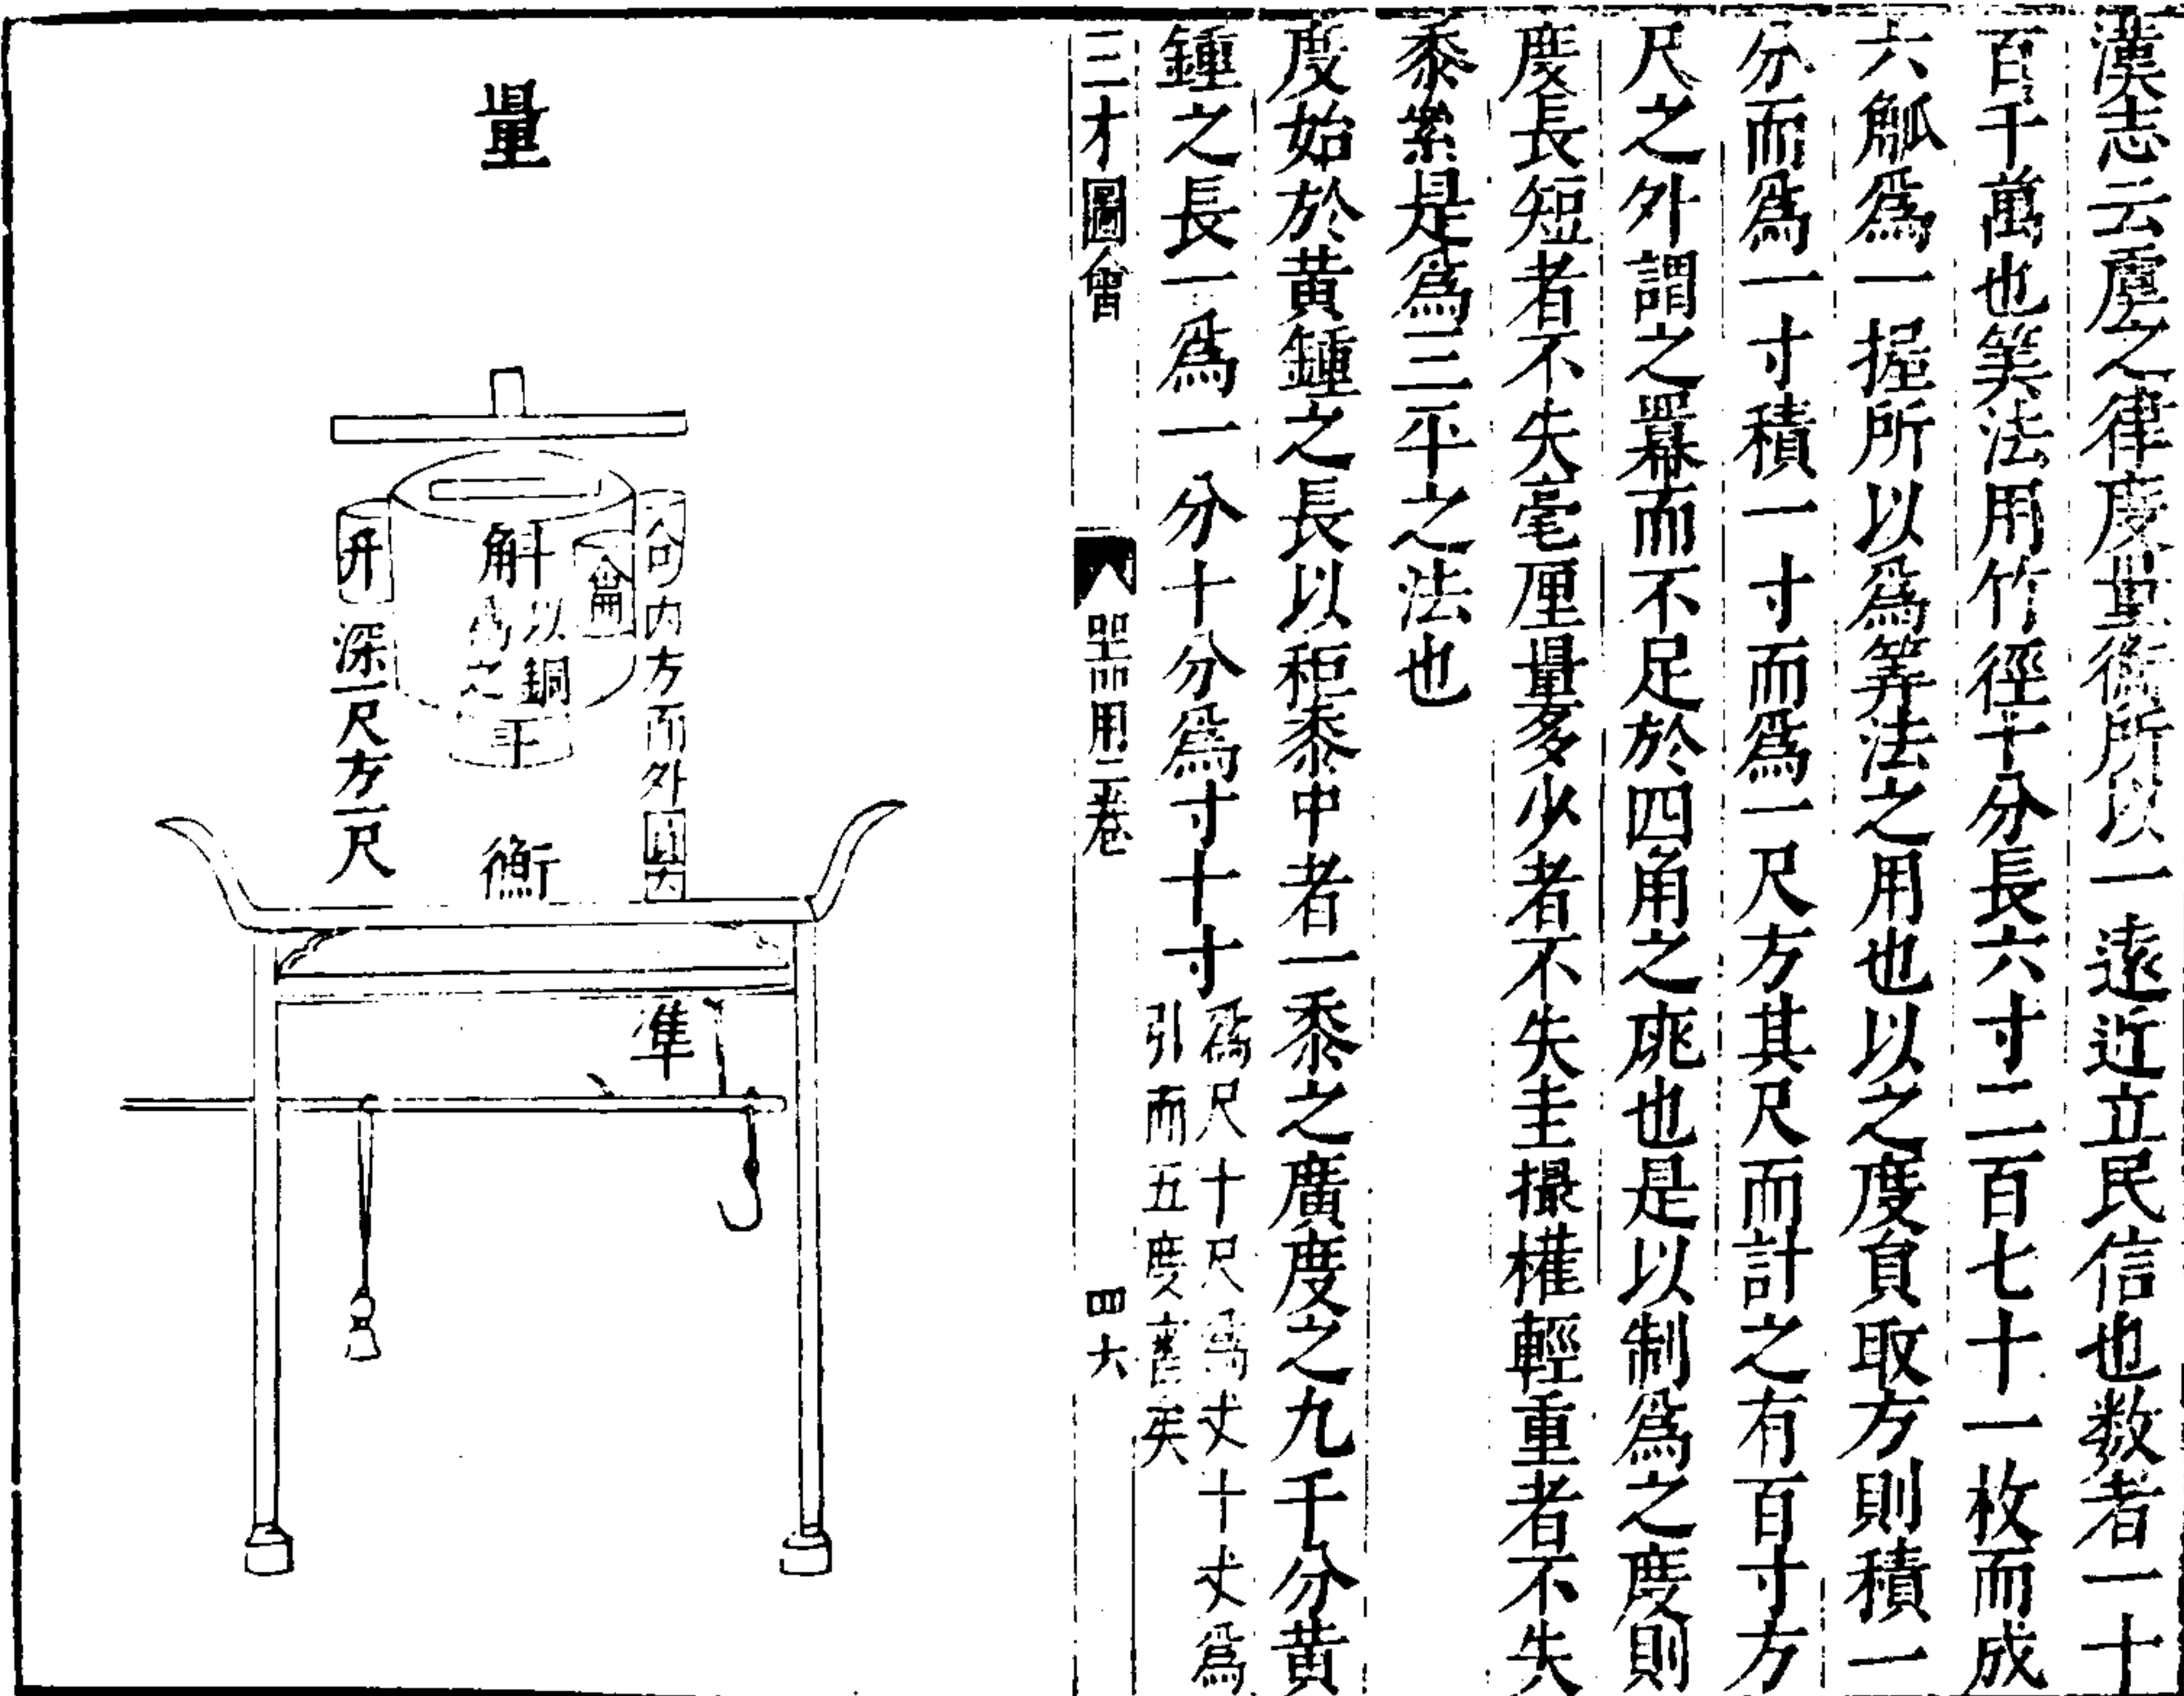 漢志云虞之律度量衡所以一遠近立民信也数者一十
百千萬也筭法用竹徑十分長六寸二百七十一枚而成
六觚爲一握所以爲筭法之用也以之度負取方則積一
分而爲一寸積一寸而爲一尺方其尺而計之有百寸方
尺之外謂之羃而不足於四角之庣也是以制爲之度則
度長短者不失毫厘量多少者不失圭撮權輕重者不失
黍絫是爲三平之法也
度始於黄鍾之長以秬黍中者一黍之廣度之九千分黄
鍾之長一爲一分十分爲寸十寸
爲尺十尺爲丈十丈爲
引而五度審矣
三才圖會
器用二卷
四六
量
合
内方而外圓
龠
斛
以銅
爲之
斗
升
深一尺方一尺
衡
準